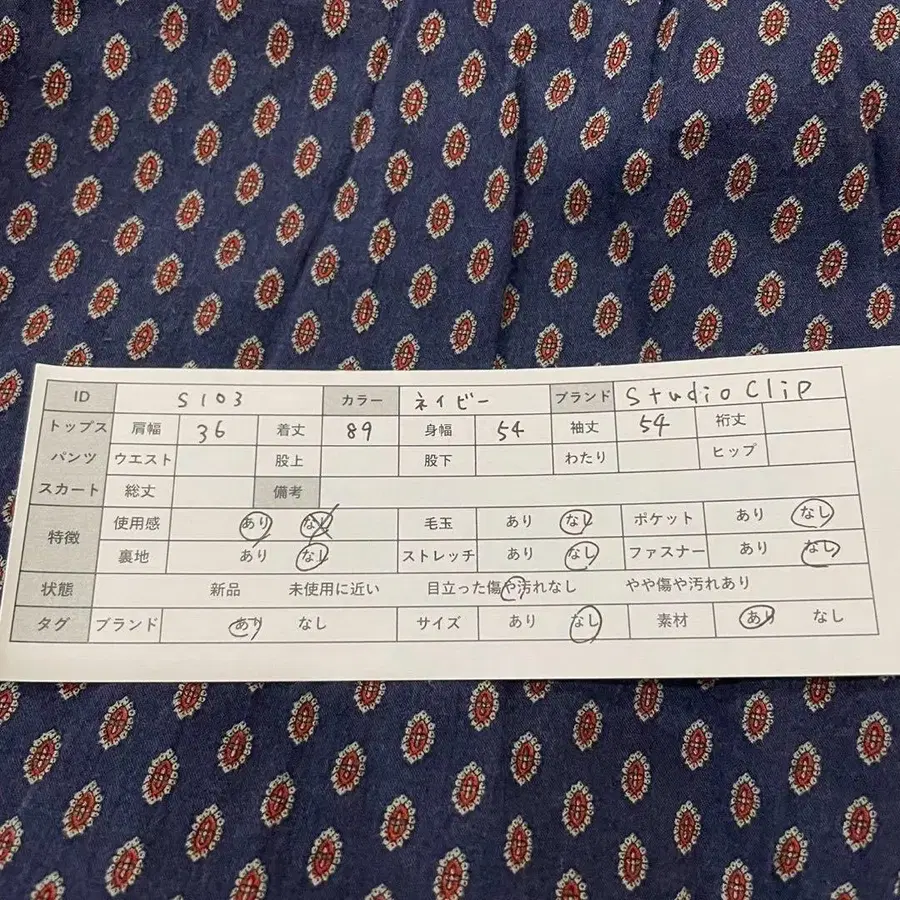 ID S103 カラー ネイビー ブランド Studio Clip
トップス 肩幅 36 着丈 89 身幅 54 袖丈 54 裄丈
パンツ ウエスト 股上 股下 わたり ヒップ
スカート 総丈 備考
特徴 使用感 あり なし 毛玉 あり なし ポケット あり なし
裏地 あり なし ストレッチ あり なし ファスナー あり なし
状態 新品 未使用に近い 目立った傷や汚れなし やや傷や汚れあり
タグ ブランド あり なし サイズ あり なし 素材 あり なし